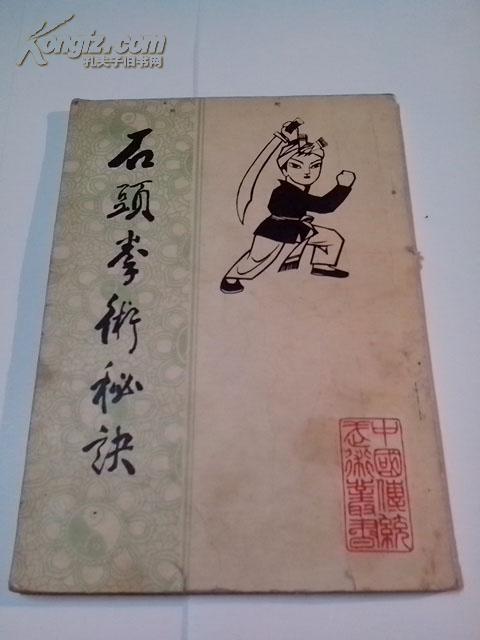 Kongfz.com
孔夫子旧书网
石頭拳術秘訣
中國傳統
武術叢書